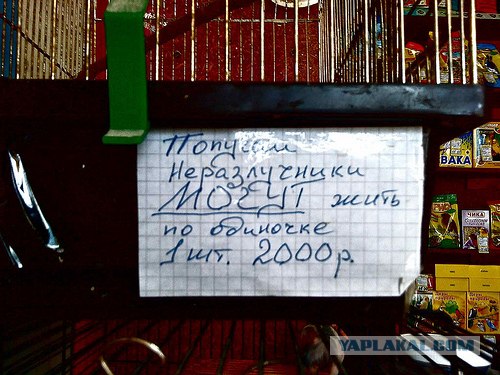 Попугаи
Неразлучники
МОГУТ жить
по одиночке
1 шт. 2000 р.
ВАКА
ЧИКА
YAPLAKAL.COM